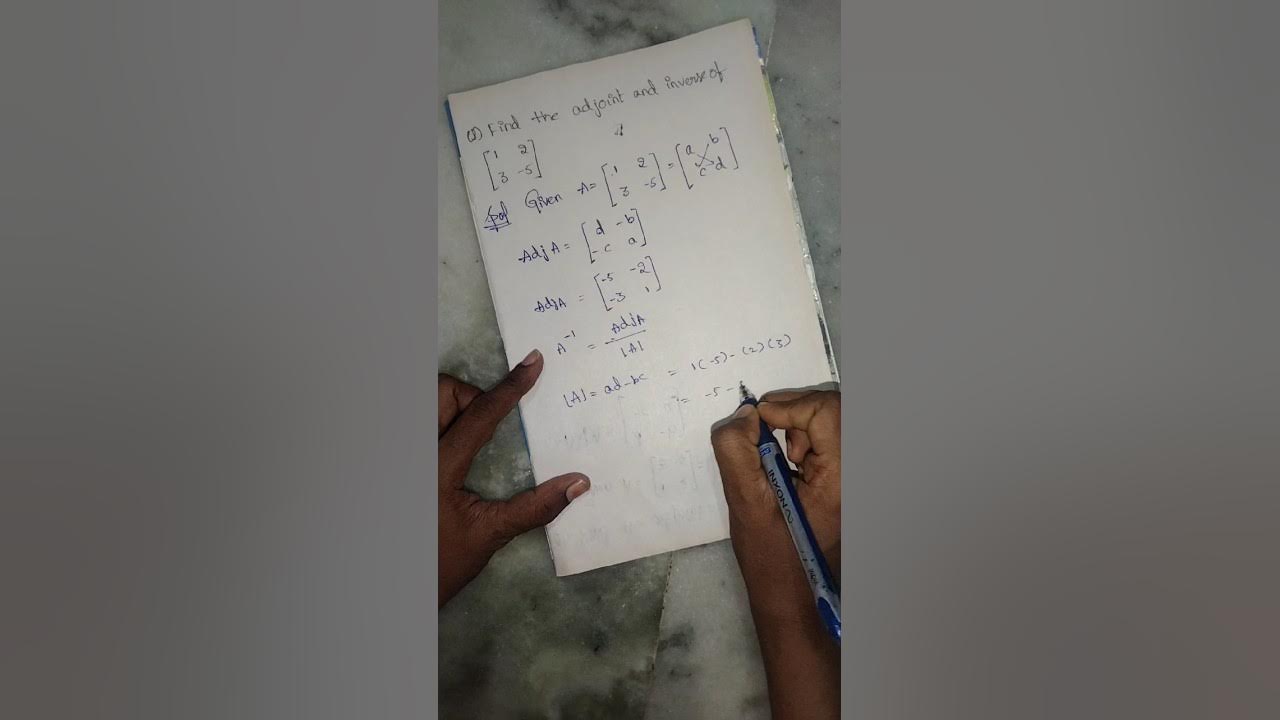 Q) Find the adjoint and inverse of
[1 2
3 -5]
Sol Given A = [1 2
3 -5] = [a b
c d]
Adj A = [d -b
-c a]
Adj A = [-5 -2
-3 1]
A⁻¹ = Adj A / |A|
|A| = ad - bc = 1(-5) - (2)(3)
= -5 -
INXON